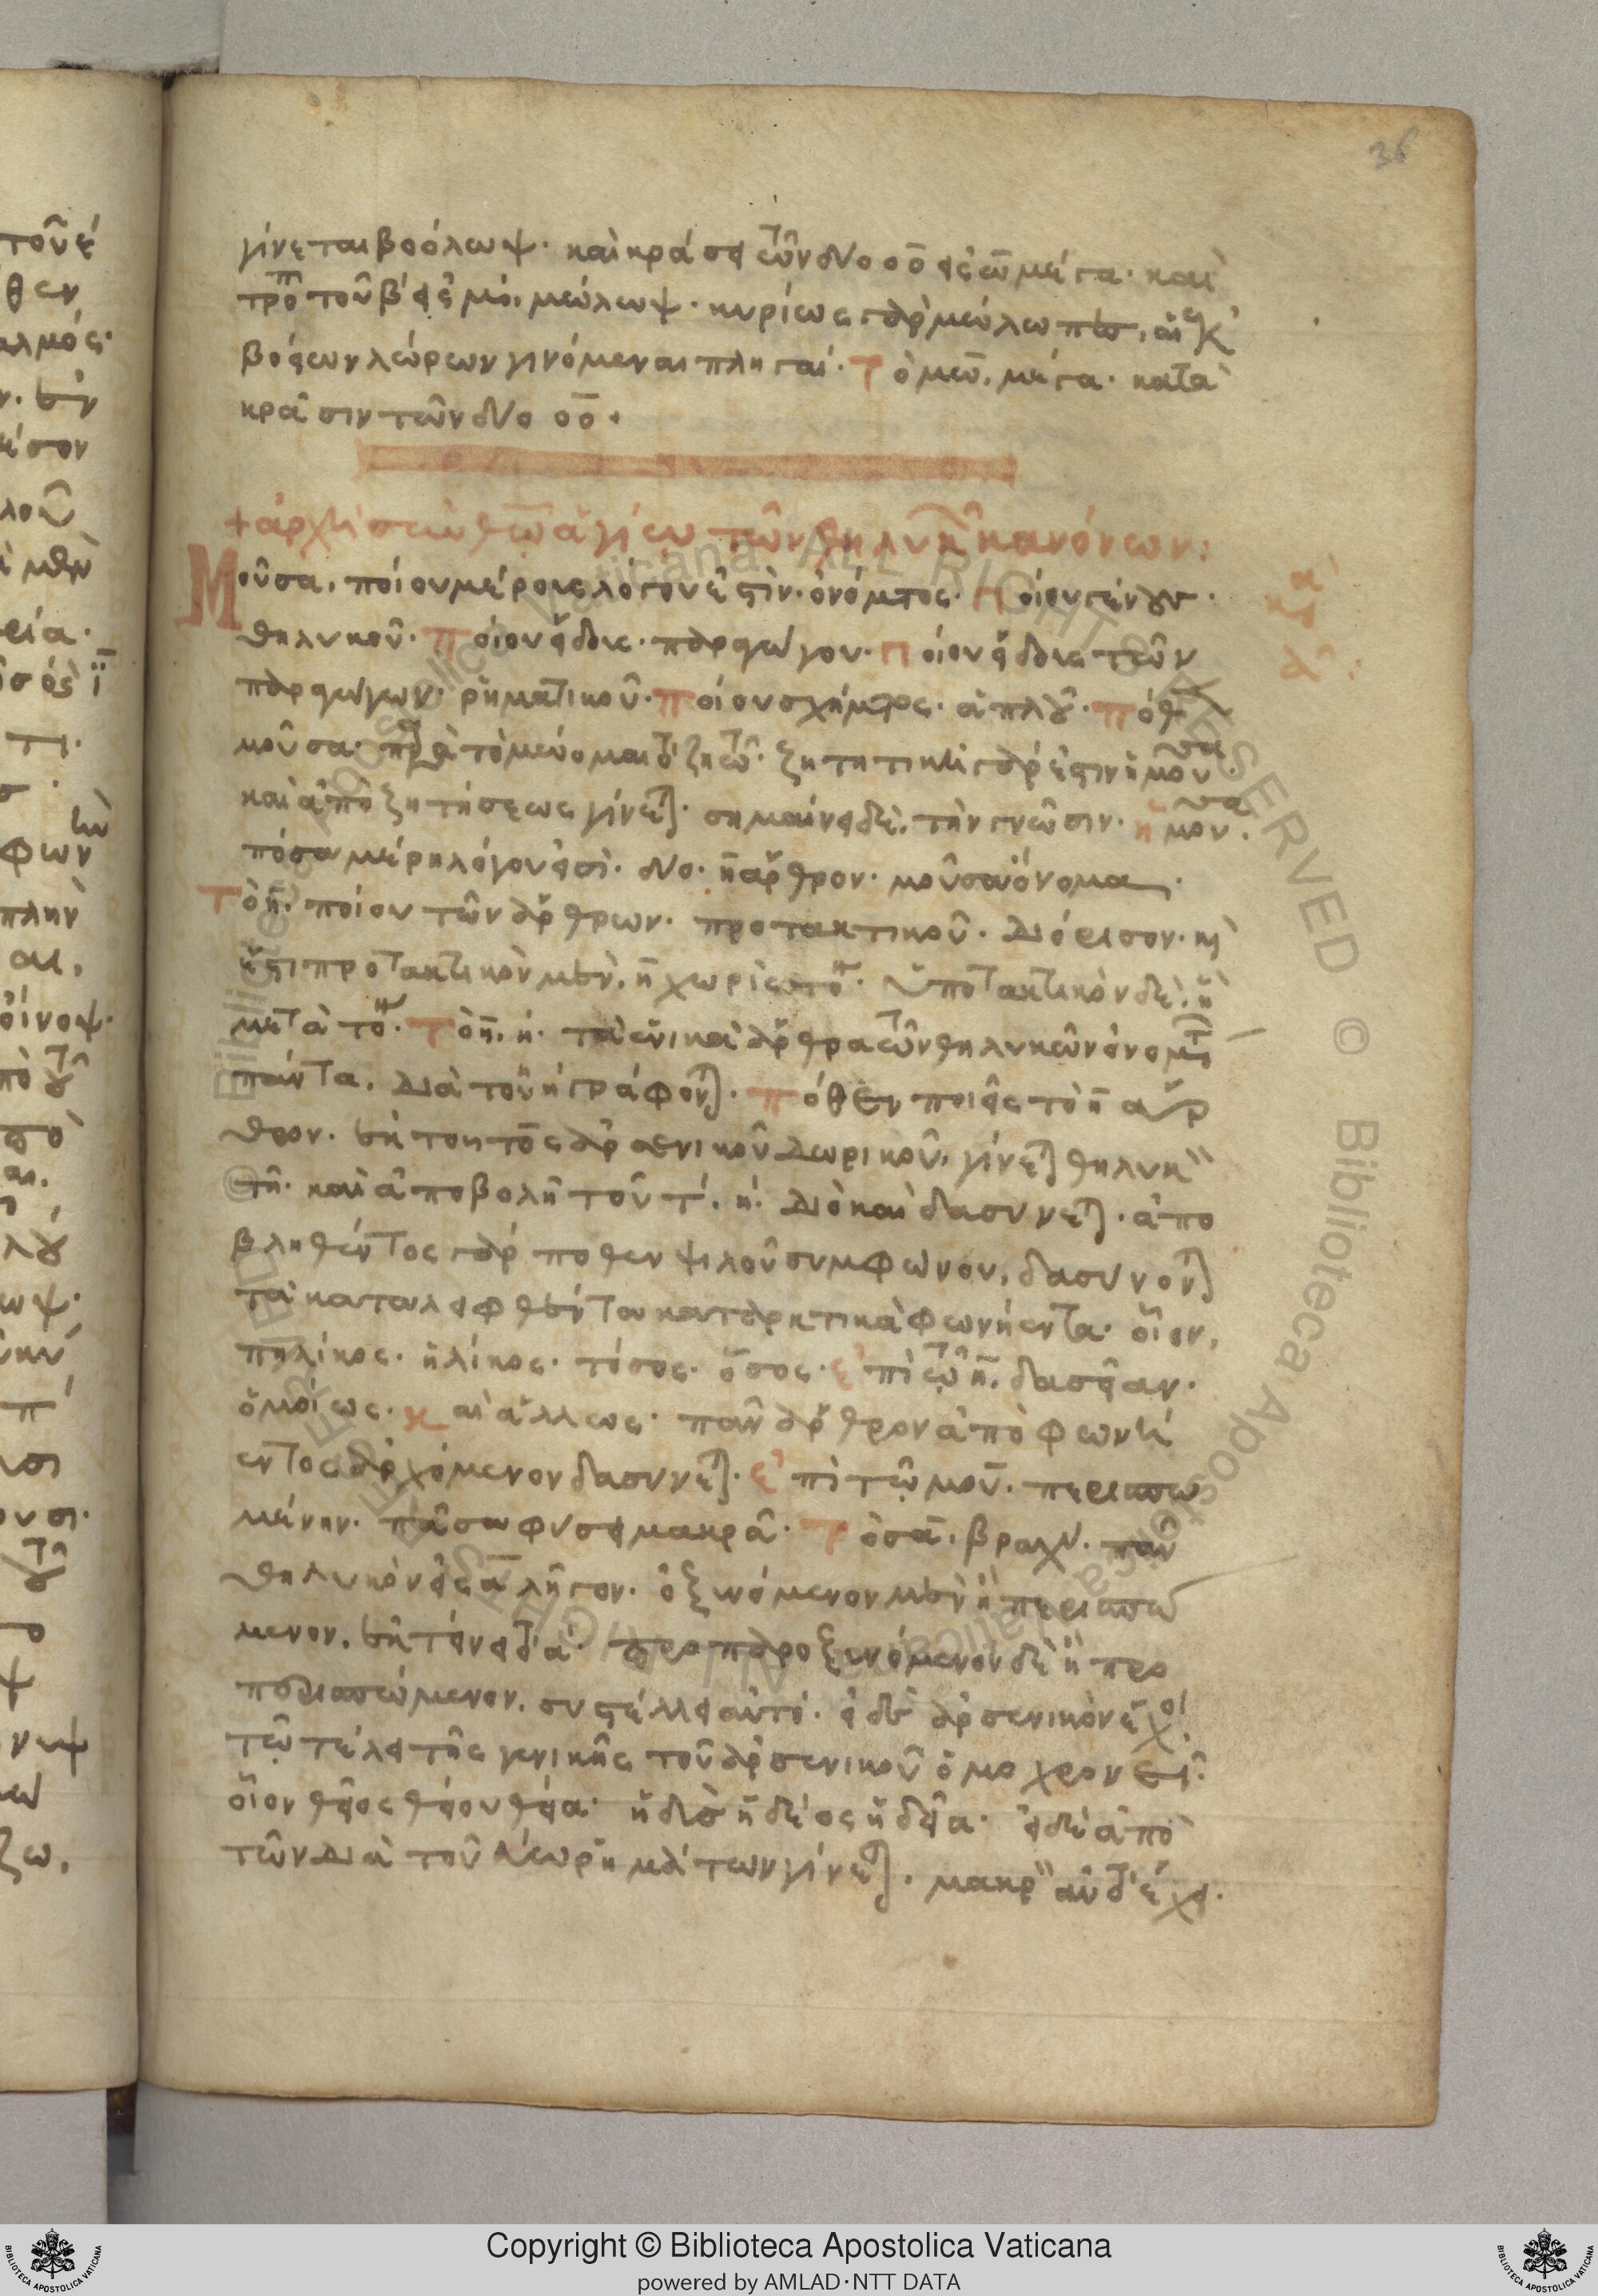 36
γίνεται βοόλωψ· καὶ κράσει τῶν δύο οο εἰς ω μέγα· καὶ
τροπ τοῦ β εἰς μ, μώλωψ· κυρίως γὰρ μώλωπες, αἱ ἐκ
βοείων λώρων γινόμεναι πληγαί· Τὸ μω, μέγα· κατὰ
κρᾶσιν τῶν δύο οο·
+ ἀρχὴ σὺν θῶ ἁγίω τῶν θηλυκῶν κανόνων:
Μοῦσα, ποίου μέρους λόγου ἐστίν· ὀνόματος· Ποίου γένους·
α
θηλυκοῦ· Ποίου εἴδους· παραγώγου· Ποίου εἴδους τῶν
παραγώγων· ῥηματικοῦ· Ποίου σχήματος· ἁπλοῦ· Πόθεν
μοῦσα· παρὰ τὸ μῶ ὁμαι τὸ ζητῶ· ζητητικὴ γάρ ἐστιν ἡ μοῦσα·
καὶ ἀπὸ ζητήσεως γίνεται· σημαίνει δὲ, τὴν γνῶσιν· ἡ μοῦσα·
πόσα μέρη λόγου εἰσί· δύο· η ἄρθρον· μοῦσα ὄνομα
Τὸ η· ποίου τῶν ἄρθρων· προτακτικοῦ· Διόρισον·
ἔστι προτακτικὸν μὲν, ἡ χωρὶς τοῦ· ὑποτακτικὸν δὲ, ἡ
μετὰ τοῦ· Τὸ η, η· τὰ ἑνικὰ ἄρθρα τῶν θηλυκῶν ὀνομάτων
πάντα, διὰ τοῦ η γράφονται· Πόθεν ποιεῖς τὸ η ἄρ
θρον· ἐκ τοῦ τὸς ἀρσενικοῦ δωρικοῦ, γίνεται θηλυκὸν
τὴ· καὶ ἀποβολῆ τοῦ τ, η· Διὸ καὶ δασύνεται· ἀπο
βληθέντος γάρ ποθεν ψιλοῦ συμφώνου, δασύνονται
τὰ καταλειφθέντα καταρκτικὰ φωνήεντα· οἷον,
πηλίκος· ἡλίκος· τόσος· ὅσος· ἐπὶ τῶ η, δασεῖαν·
ὁμοίως· καὶ ἄλλως· πᾶν ἄρθρον ἀπὸ φωνή
εντος ἀρχόμενον δασύνεται· ἐπὶ τῶ μοῦ· περισπω
μένην· πᾶσα φύσει μακρᾶ· Τὸ σα, βραχύ· πᾶν
θηλυκὸν εἰς α λῆγον· ὀξυνόμενον μὲν ἢ περισπώ
μενον, ἐκτείνει τὸ α· προπαροξυνόμενον δὲ ἢ προ
περισπώμενον, συστέλλει αὐτό· εἰ δὲ ἀρσενικὸν ἔχοι
τῶ τέλει τῆς γενικῆς τοῦ ἀρσενικοῦ ὁμοχρονεῖ·
οἷον θεῖος θείου θεία· ἡδὺς ἡδέος ἡδεῖα· εἰ δὲ ἀπὸ
τῶν διὰ τοῦ εύω ῥημάτων γίνεται· μακρὸν αὐτὸ ἔχει·
Copyright © Biblioteca Apostolica Vaticana
powered by AMLAD·NTT DATA